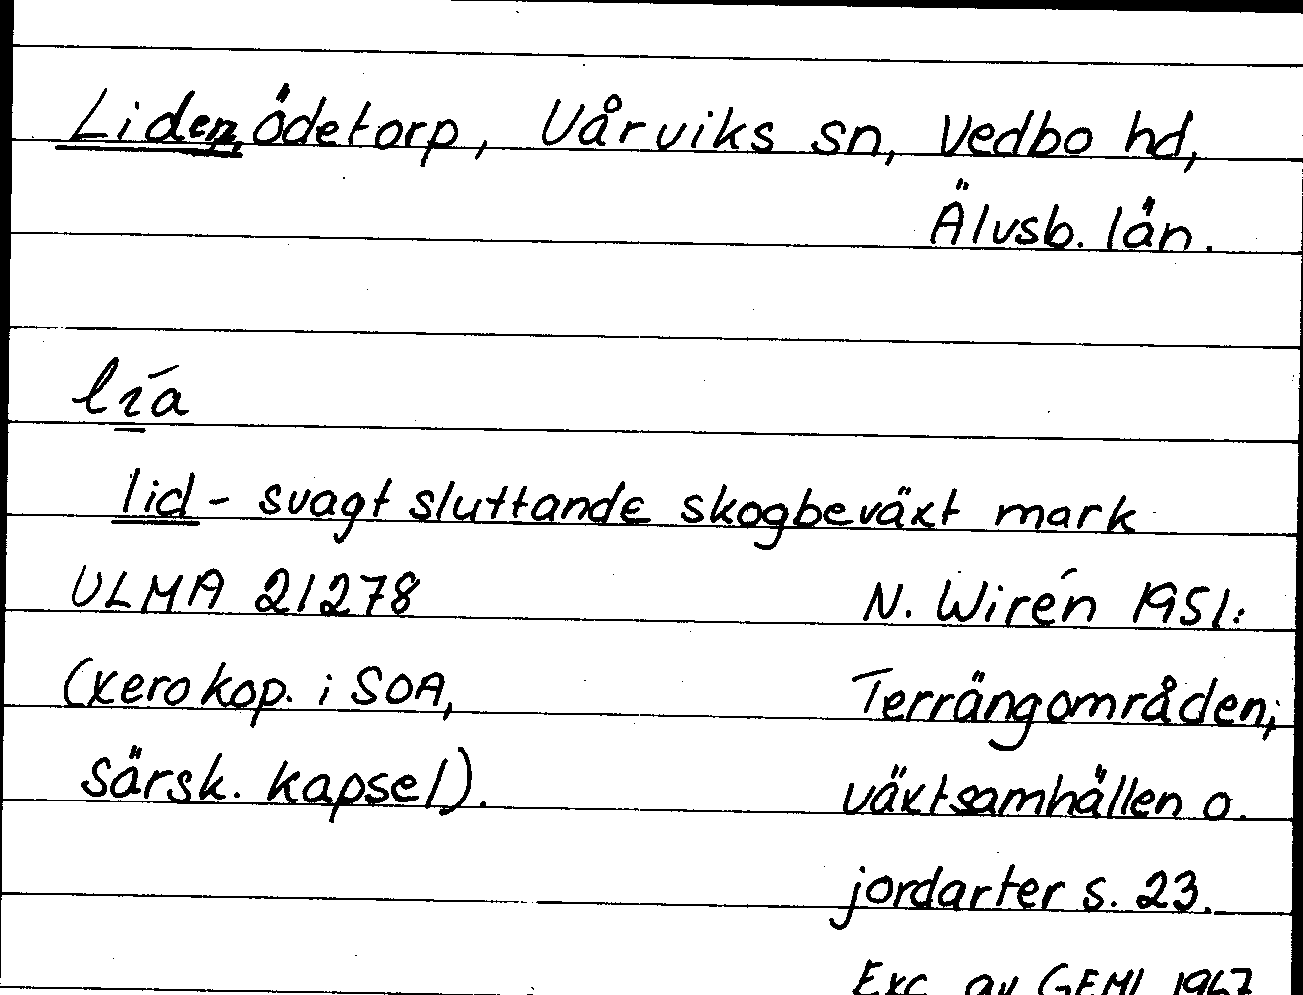 Liden, ödetorp, Vårviks sn, Vedbo hd,
Älvsb. län.
lı́a
lid - svagt sluttande skogbeväxt mark
ULMA 21278
N. Wirén 1951:
(xerokop. i SOA,
Terrängområden,
särsk. kapsel).
växtsamhällen o.
jordarter s. 23.
Exc. av GEML 1967